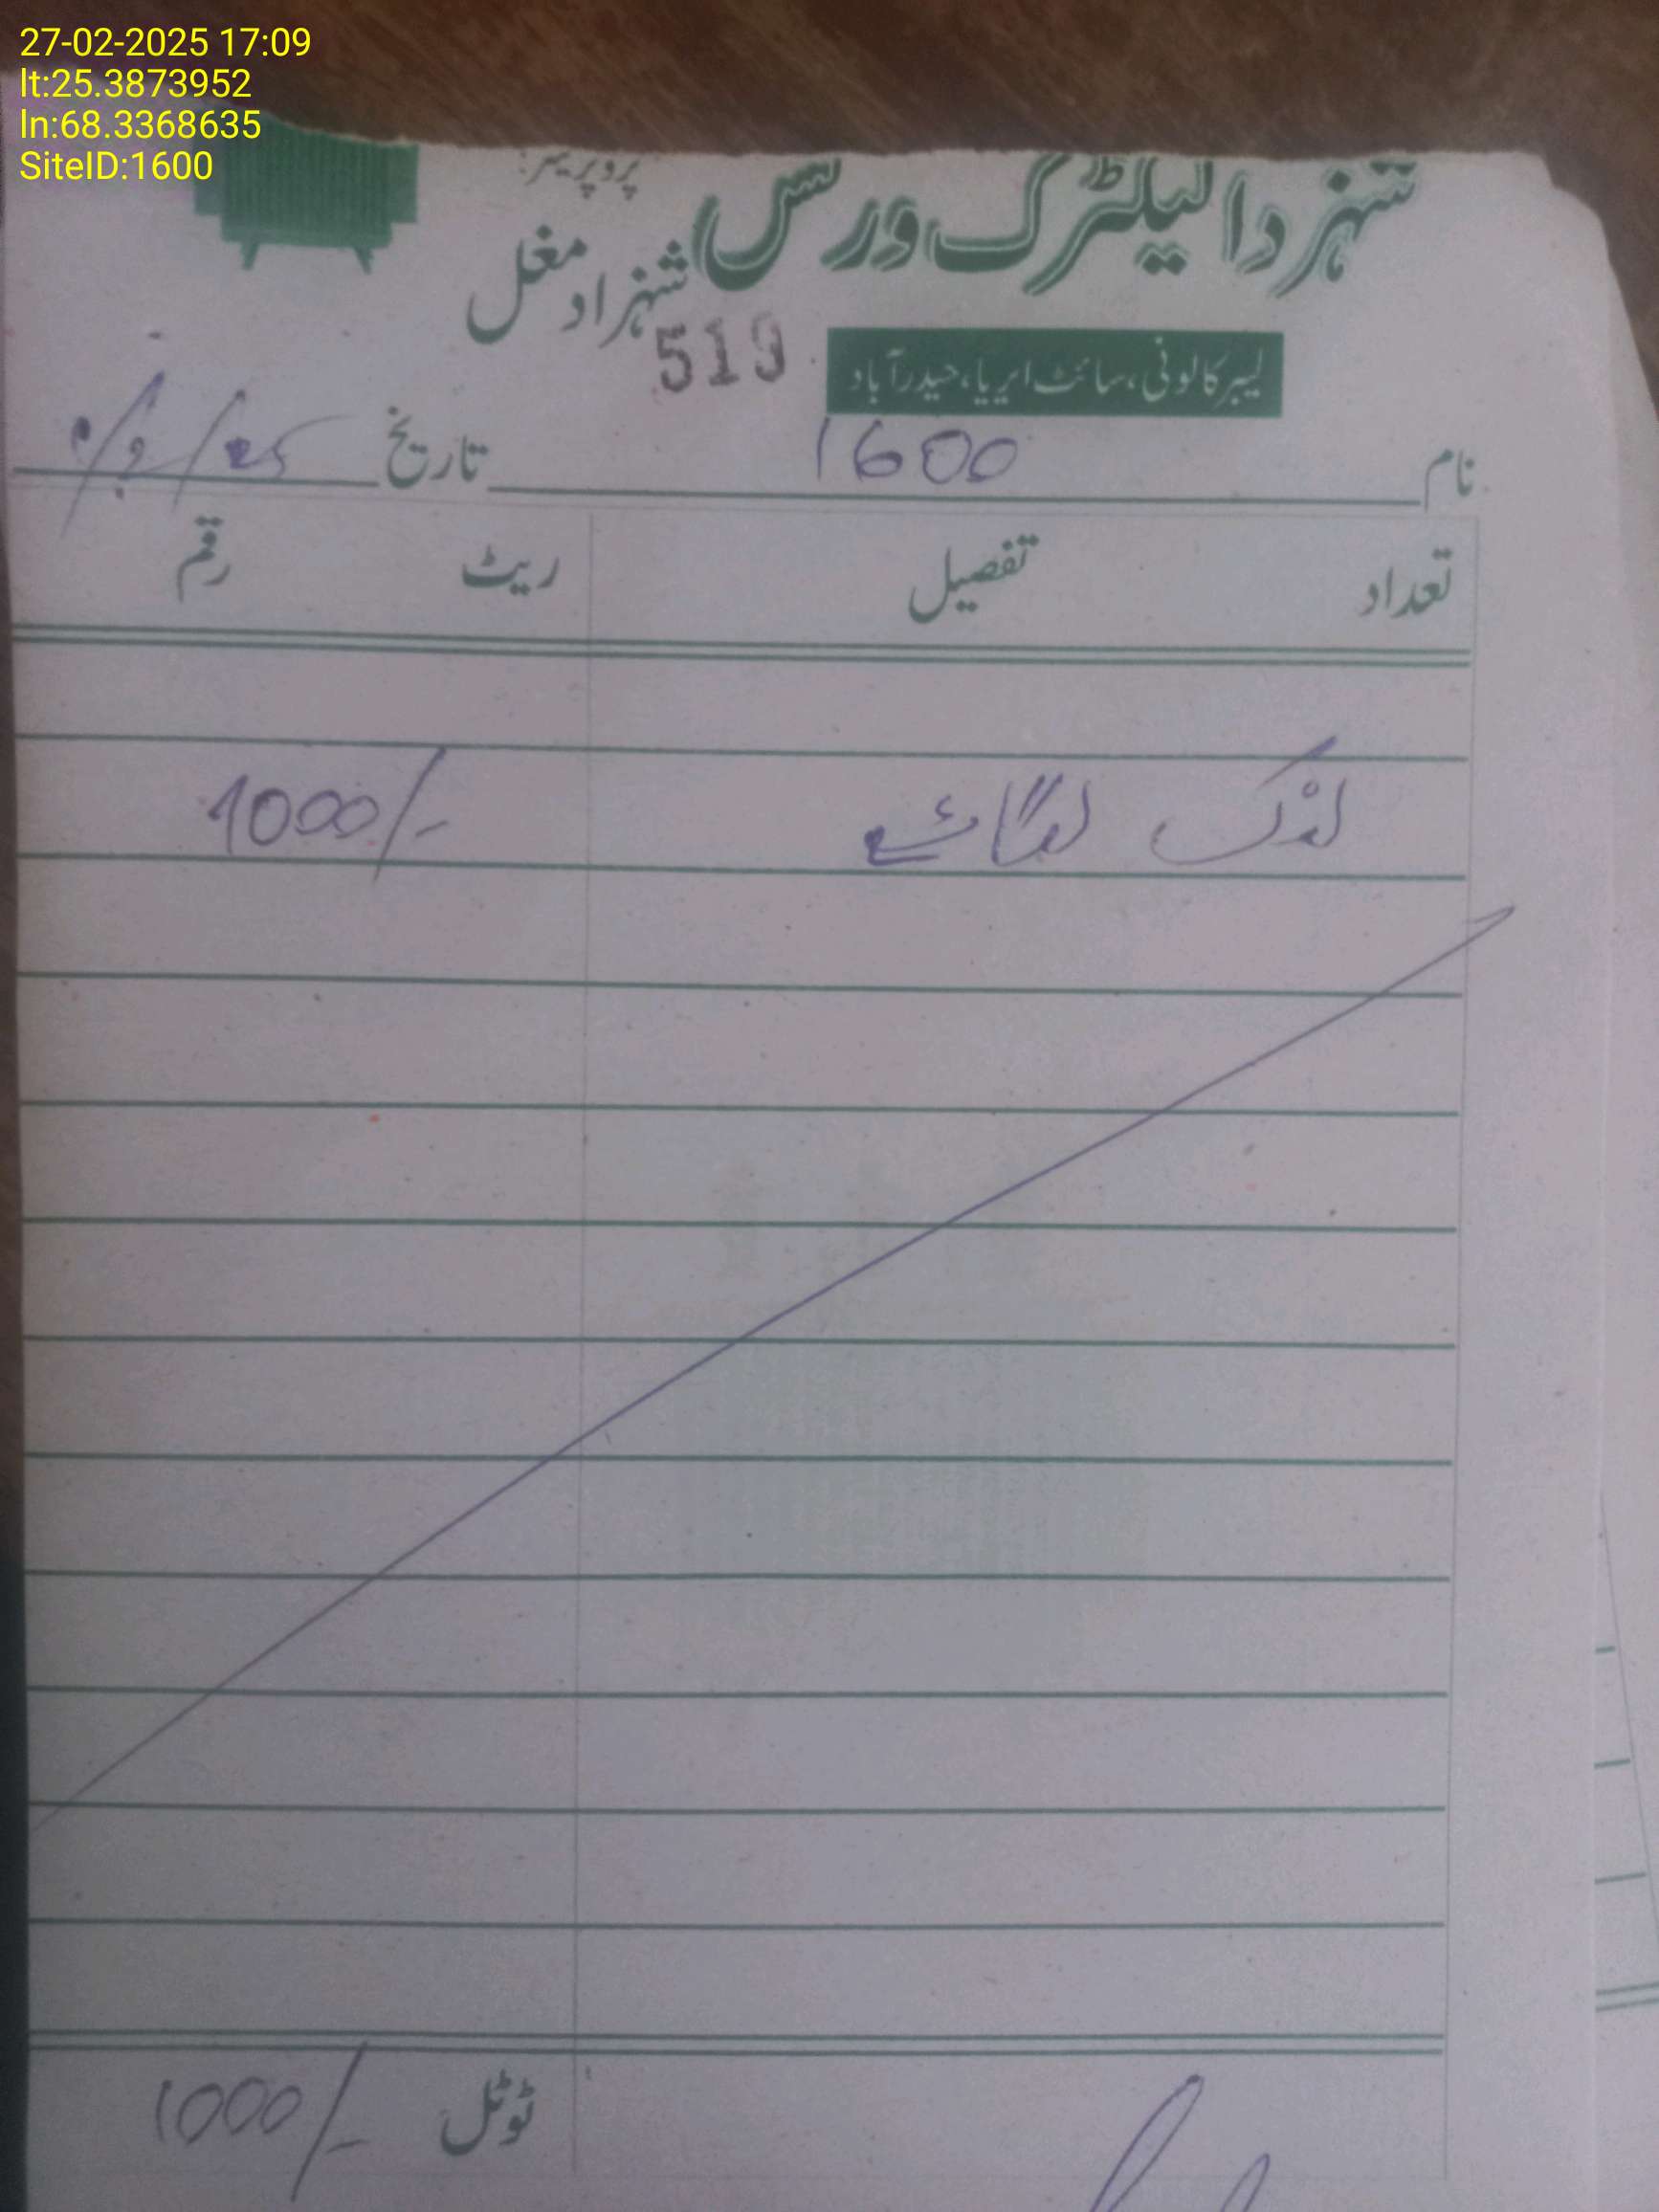 27-02-2025 17:09
lt:25.3873952
ln:68.3368635
SiteID:1600
شہزاد الیکٹرک ورکس
پروپریٹر:
شہزاد مغل
519
لیبر کالونی، سائٹ ایریا، حیدرآباد
نام 1600 تاریخ
تعداد تفصیل ریٹ رقم
لنک لگائے 1000/-
ٹوٹل 1000/-